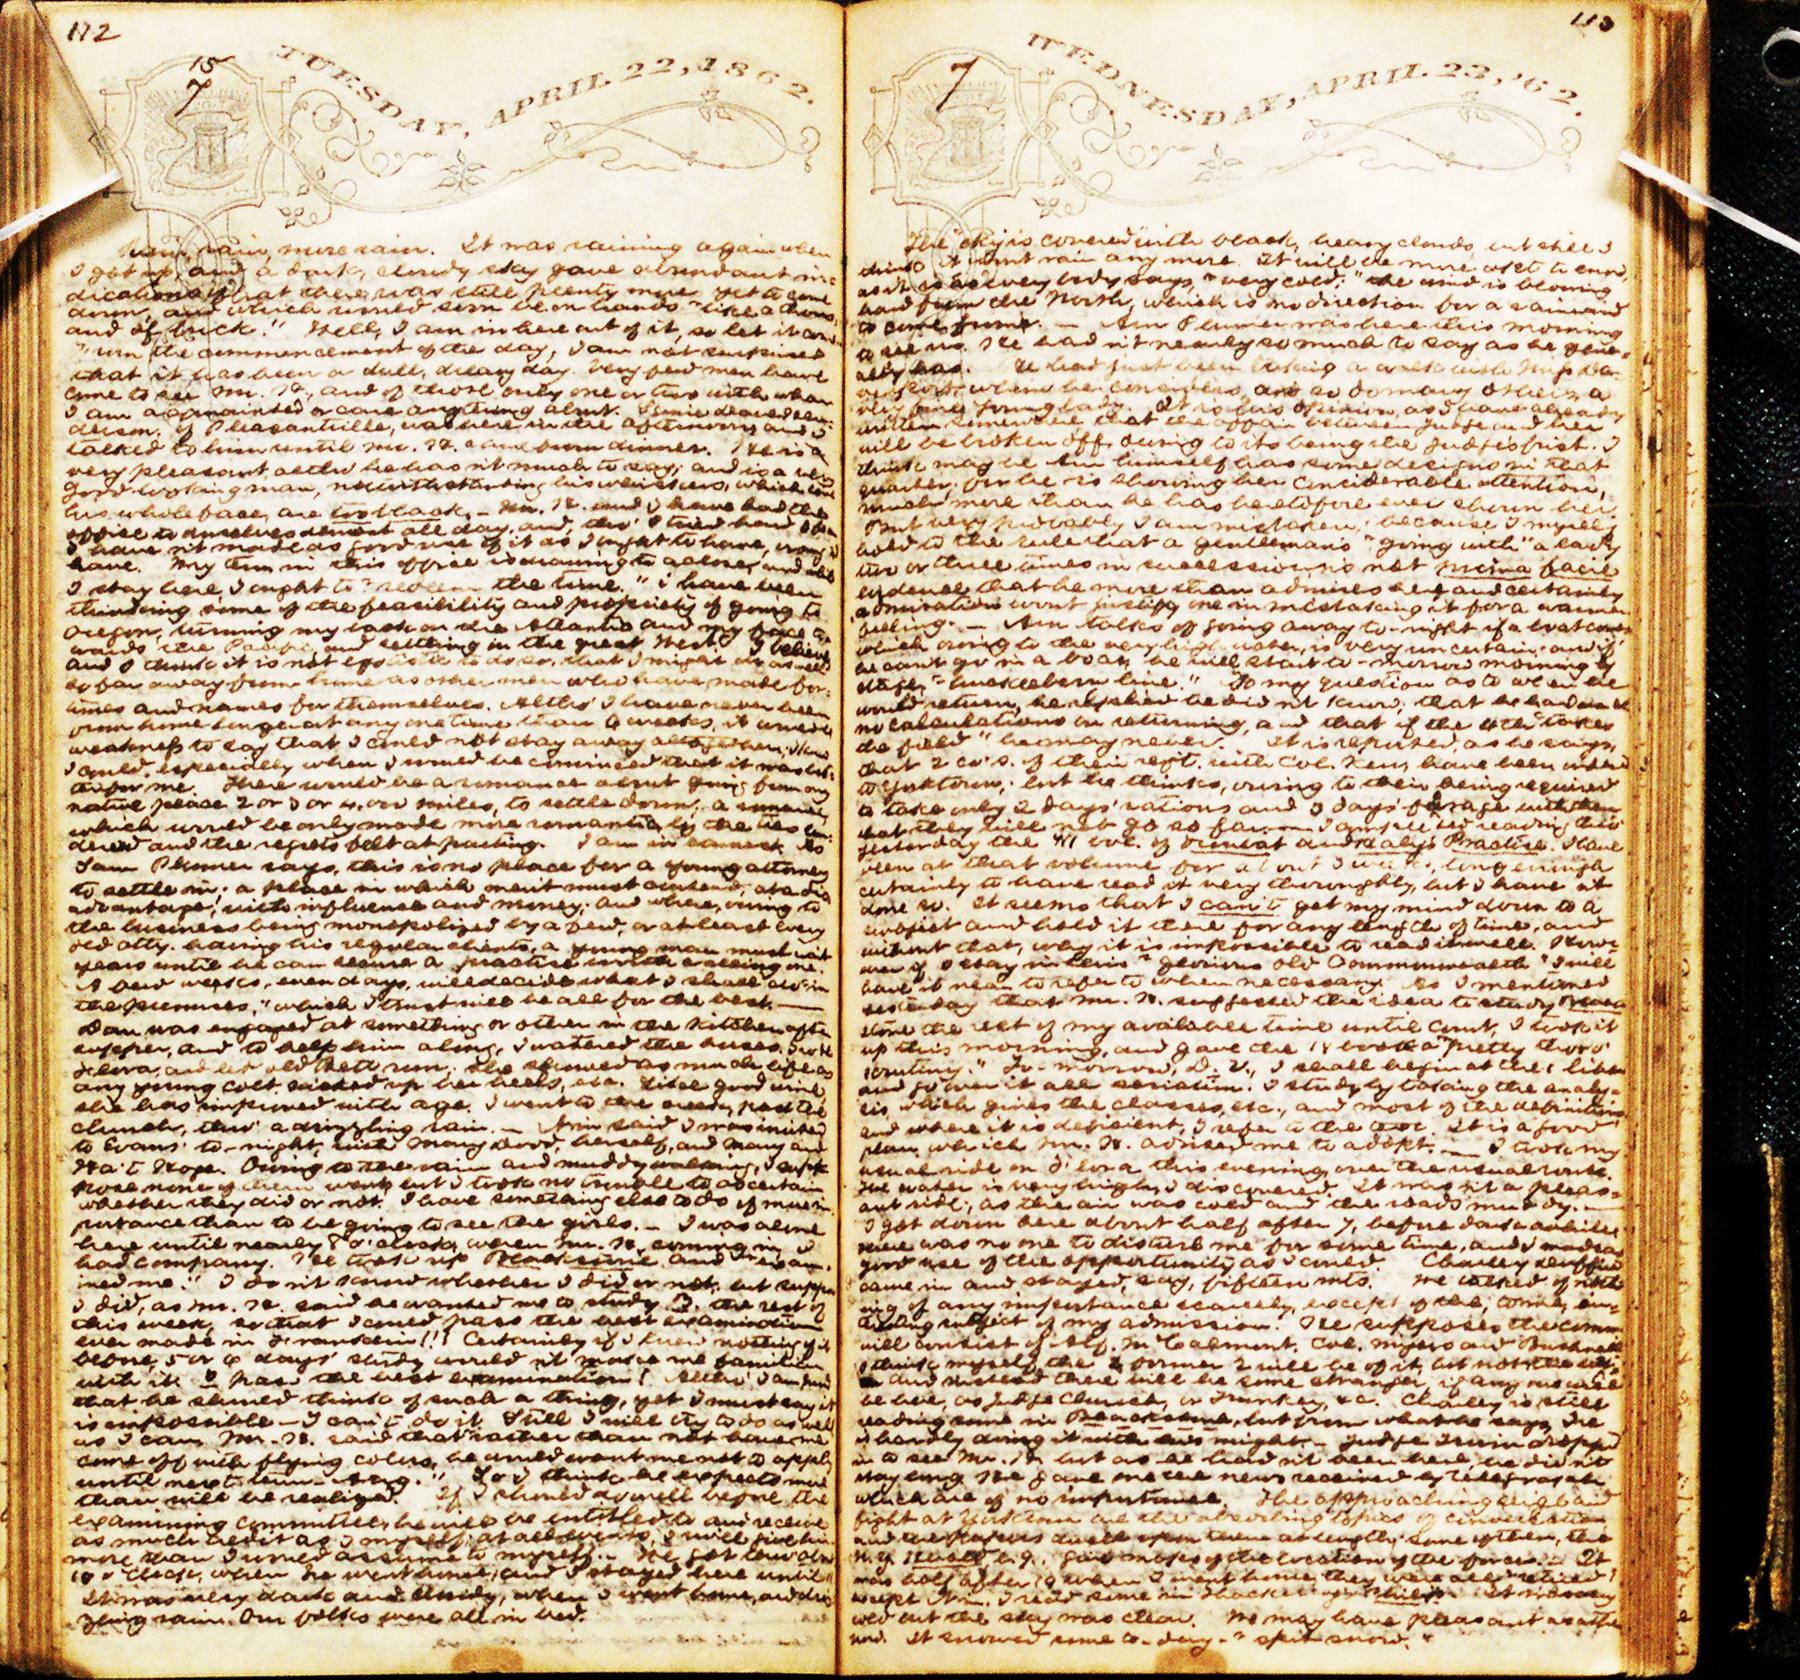 112
15
7
TUESDAY, APRIL 22, 1862.
Rain, rain, more rain. It was raining again when
I got up, and a dark, cloudy sky gave abundant in-
dications that there was still plenty more yet to come
down, and which would soon be on hands "like a thous-
and of brick." Well, I am in here out of it, so let it
the commencement of the day, I am not surprised
that it has been a dull, dreary day. Very few men have
come to see Mr. H., and of those only one or two with whom
I am acquainted or care anything about.
of Pleasantville, was here in the afternoon, and I
talked to him until Mr. H. came from dinner. He is a
very pleasant altho he hasn't much to say; and is a very
good looking man, notwithstanding his whiskers, which
his whole face, are too black. – Mr. H. and I have had the
office to ourselves almost all day, and, tho' I tried hard
I haven't made as good use of it as I ought to have,
have. My time in this office is drawing to a close, and while
I stay here, I ought to "redeem the time." I have been
thinking some of the feasibility and propriety of going to
Oregon, turning my back on the Atlantic and my face to-
wards the Pacific, and settling in the great West. I believe
and I think it is not egotistic to do so, that I might do as well
so far away from home as other men who have made for-
tunes and names for themselves. Altho' I have never been
from home longer at any one time than 6 weeks, it would
weakness to say that I could not stay away altogether. I know
I could, especially when I would be convinced that it was bet-
ter for me. There would be a romance about going from my
native place 2 or 3 or 4,000 miles, to settle down; a romance,
which would be only made more romantic by the ties
and the regrets felt at parting. I am in earnest. As
Sam Plumer says, this is no place for a young attorney
to settle in; a place in which merit must contend, at a dis-
advantage, with influence and money; and where, owing to
the business being monopolized by a few, or at least every
old atty. having his regular clients, a young man must wait
years until he can secure a practice worth calling one.
A few weeks, even days, will decide what I shall do "in
the premises," which I trust will be all for the best. —
Dan was engaged at something or other in the kitchen after
supper, and to help him along, I watered the horses. I rode
Flora, and let old Bett run. She showed as much life as
any young colt, kicked up her heels, etc. Like good wine,
she has improved with age. I went to the creek, past the
church, thro' a drizzling rain. – Ann said I was invited
to Evans' to-night, with Mary Dodd, herself, and Mary and
Ha't Hoge. Owing to the rain and muddy walking, I sup-
pose none of them went, but I took no trouble to ascertain
whether they did or not. I have something else to do of more im-
portance than to be going to see the girls. – I was alone
here until nearly 8 o'clock, when Mr. H. coming in, I
had company. He took up Blackstone and "exam-
ined me." I don't know whether I did or not, but suppose
I did, as Mr. H. said he wanted me to study B. the rest of
this week, so that I could pass the best examination
ever made in Franklin!!! Certainly if I knew nothing of it
before, 5 or 6 days' study wouldn't make me familiar
with it. I pass the best examination! Altho' I am
that he should think of such a thing, yet I must say it
is impossible – I can't do it. Still I will try to do as well
as I can. Mr. H. said that rather than not have me
come off with flying colors, he would want me not to apply
until next term – Aug." So I think he expects more
than will be realized. If I should do well before the
examining committee, he will be entitled to and receive
as much credit as I myself; at all events, I will give him
more than I would assume to myself. – We
10 o'clock, when he went home, and I stayed here until
It was very dark and cloudy, when I went home, and driz-
zling rain. Our folks were all in bed.
113
7
WEDNESDAY, APRIL 23, '62.
The sky is covered with black, heavy clouds, but still I
think it won't rain any more. It will be more
as it is as every body says, "very cold;" the wind is blowing
hard from the North, which is no direction for a rain wind
to come from. — Sam Plumer was here this morning
to see us. He hadn't nearly so much to say as he gene-
rally has. He had just been taking a walk with Miss
whom he considers, as so do many others, a
very fine young lady. It is his opinion, as I have already
written somewhere, that the affair between Judge and her
will be broken off, owing to its being the Judge's first. I
think maybe Sam himself has some designs in that
quarter, for he is showing her considerable attention,
much more than he has heretofore ever shown her.
But very probably I am mistaken; because I myself
hold to the rule that a gentleman's "going with" a lady
two or three times in succession, is not prima facie
evidence that he more than admires her, and certainly
admiration won't justify one in mistaking it for a warmer
feeling. — Sam talks of going away to-night if a boat comes
which owing to the very high water, is very uncertain; and if
he can't go in a boat, he will start to-morrow morning by
stage, "huckleberry line." To my question as to when he
would return, he replied he didn't know; that he had made
no calculations on returning, and that if the takes
the field" he may never. It is reported, as he says,
that 2 co's. of their regt. with Col. have been ordered
to Yorktown; but he thinks, owing to their being required
to take only 2 days' rations and 3 days' forage with them
that they will not go so far. — I finished reading
yesterday the vol. of Troubat and Haly's Practise. I have
been at that volume for about 3 weeks, long enough
certainly to have read it very thoroughly, but I haven't
done so. It seems that I can't get my mind down to a
subject and hold it there for any length of time, and
without that, why it is impossible to read it well. However
if I stay in this "glorious old Commonwealth" I will
have it near to refer to when necessary. As I mentioned
yesterday that Mr. H. suggested the idea to study
the rest of my available time until Court, I took it
up this morning, and gave the 1st book a "pretty thoro'
scrutiny." To-morrow, D. V., I shall begin at the
and go over it all seriatim. I study by taking the analy-
sis, which gives the classes, etc., and most of the definitions,
and where it is deficient, I refer to the text. It is a good
plan, which Mr. H. advised me to adopt. — I took my
usual ride on Flora this evening, over the usual route.
The water is very high, I discovered. It wasn't a pleas-
ant ride, as the air was cold and the roads muddy. —
I got down here about half after 7, before dark awhile.
There was no one to disturb me for some time, and I made as
good use of the opportunity as I could. Charley
came in and stayed, say, fifteen mts. We talked of noth-
ing of any importance scarcely, except of the, to me, in-
teresting subject of my admission. He supposes the comm.
will consist of Alf. McCalmont, Col. Myers and Bushnell
I think myself, the 2 former will be of it, but not the
and instead there will be some stranger, if any one will
be here, as Judge Church, or Trunkey, &c. Charley is still
reading some in Blackstone, but from what he says, he
is hardly doing it with his might. – Judge Irwin dropped
in to see Mr. H. but as he hadn't been here, he didn't
stay long. He gave me the news received by telegraph
which are of no importance. The approaching
fight at Yorktown are the absorbing topics of conversation
and the papers dwell upon them at length; some of them, the
N. Y. e.g., gave maps of the location of the forces. — It
was half after 10 when I went home; they were all retired
except Jim. I read some in Thackeray's It was
but the sky was clear. We may have pleasant weather
now. It snowed some to-day – "spit snow."